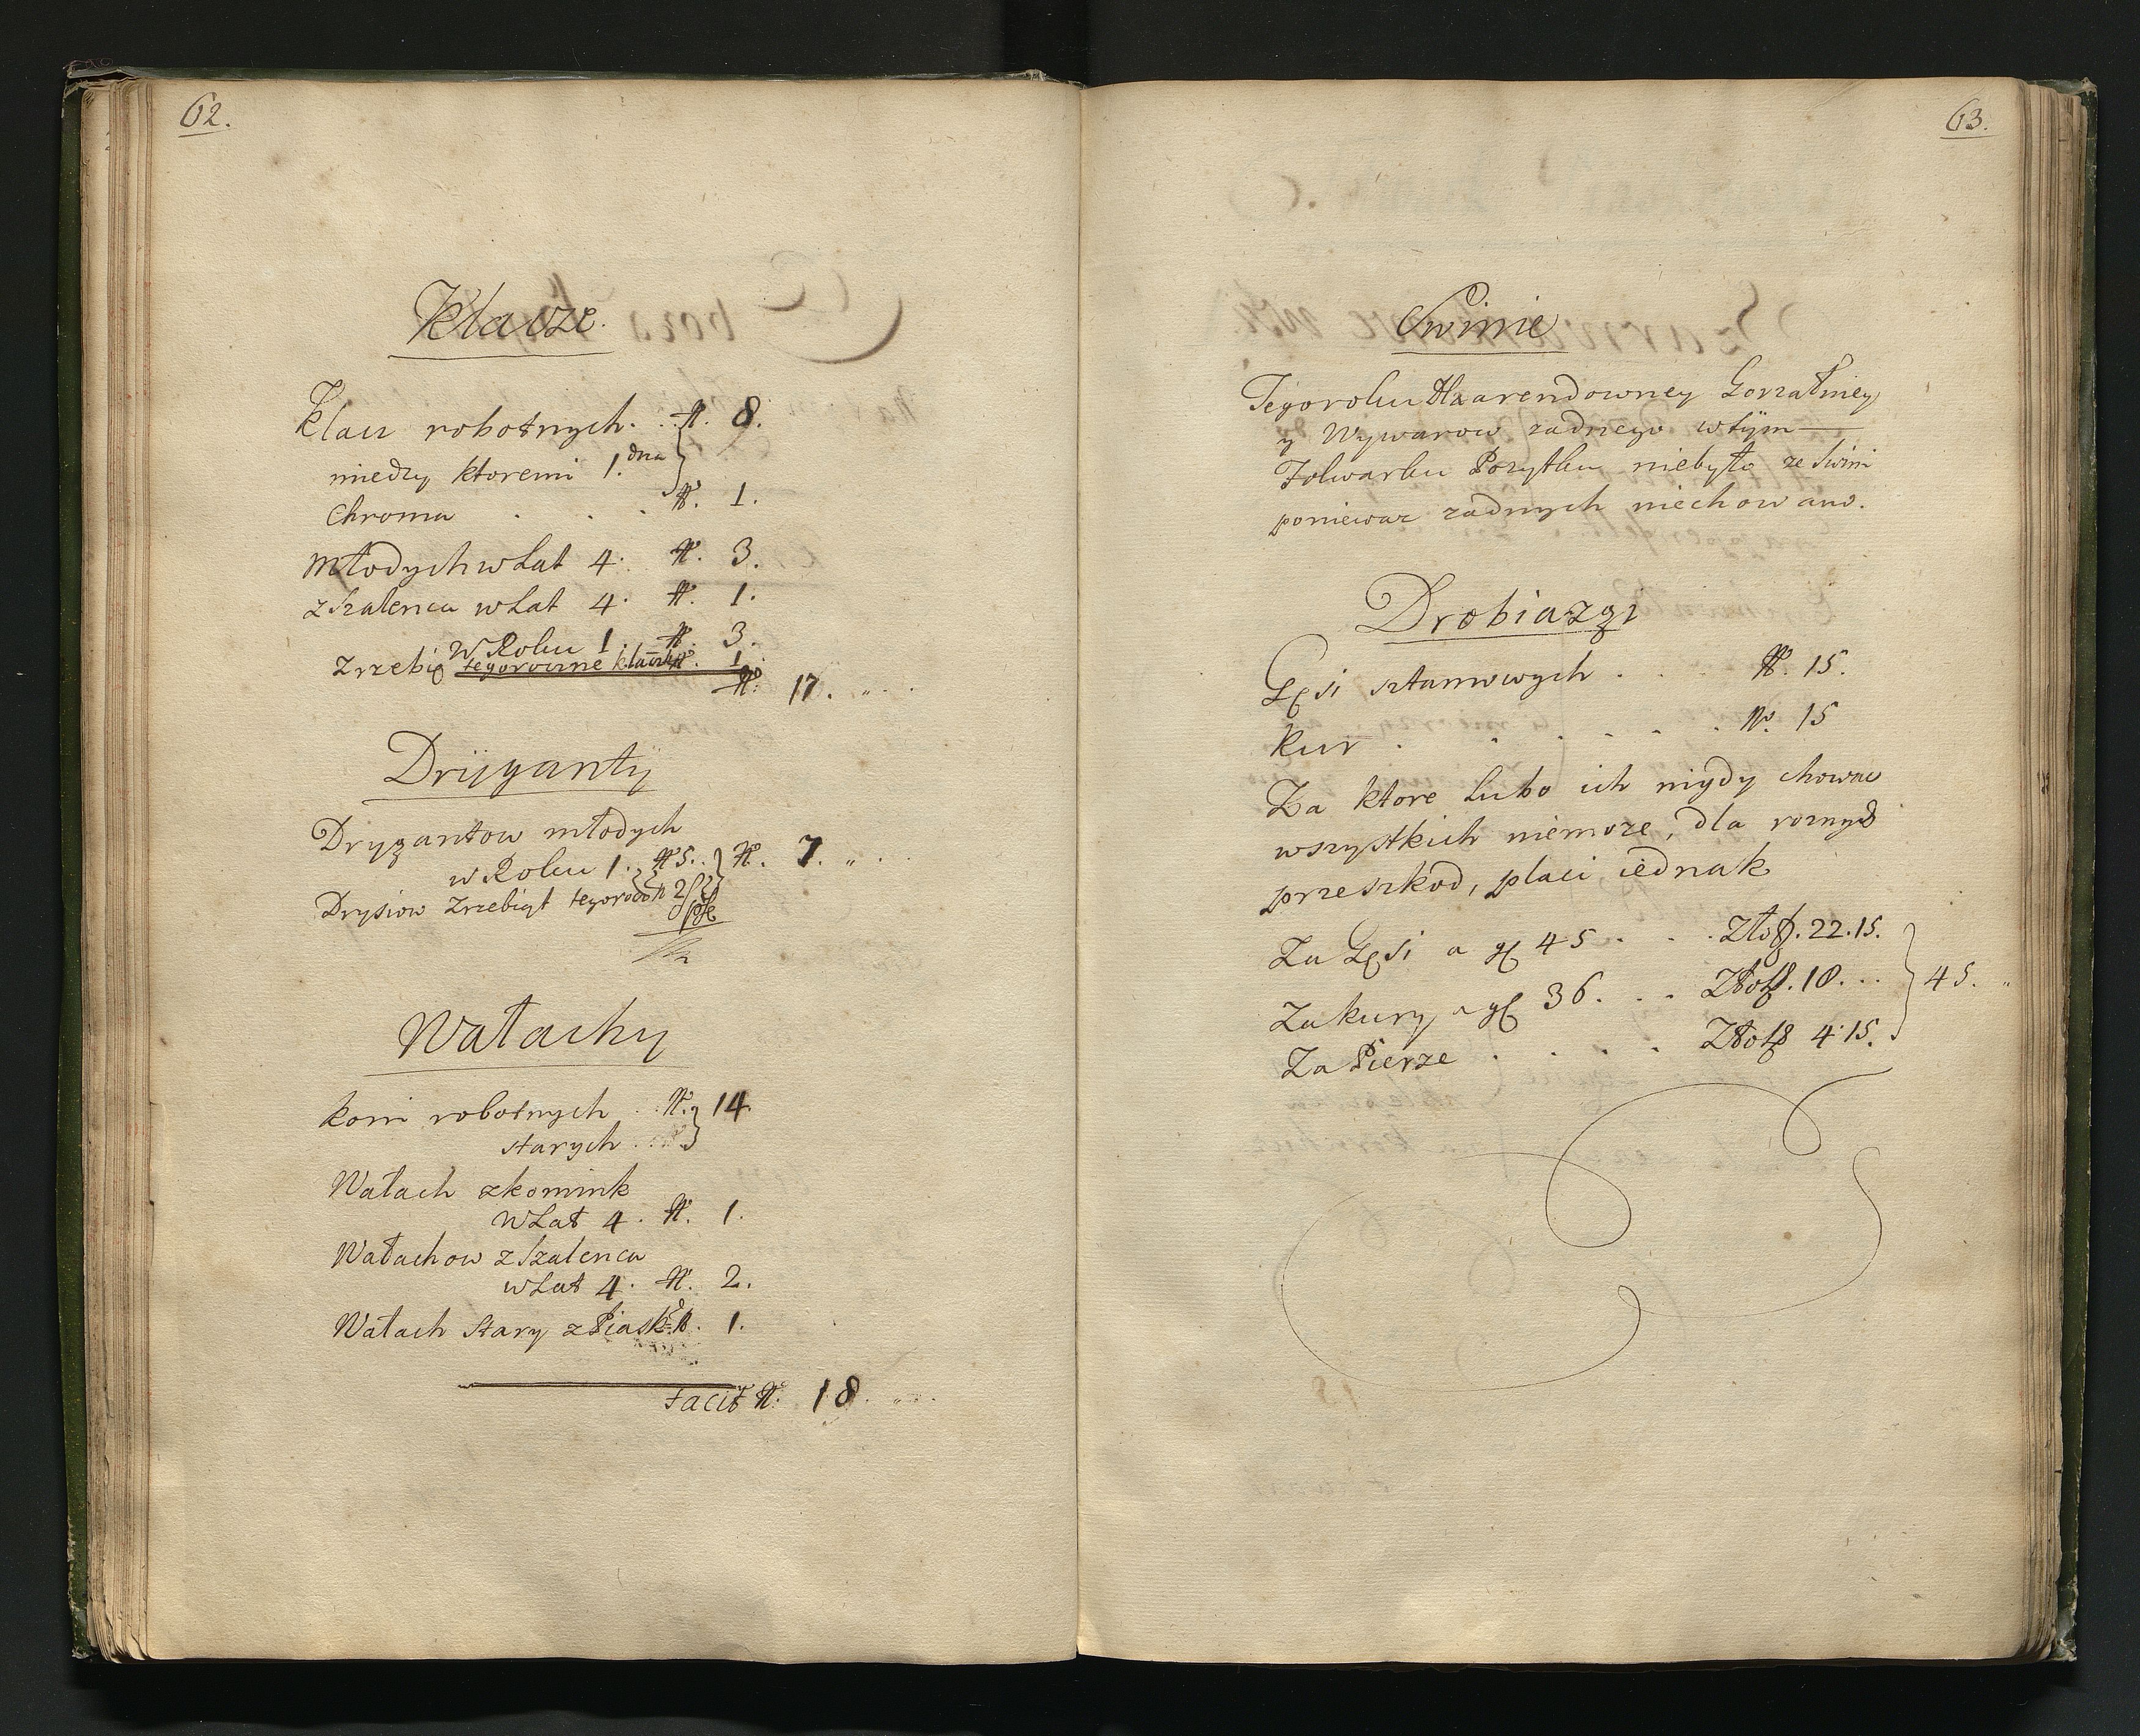 62.
Klacze.
Klacz robotnych. . . N. 8.
miedzy ktoremi 1. dna
Chroma . . . N. 1.
Młodych w Lat 4. N. 3.
z Szalenca w Lat 4. N. 1.
W Roku 1. N. 3.
Zrzebię tegoroczne klaczk N. 1.
N. 17. „ . .
Dryganty
Drygantow młodych
w Roku 1. N 5. . N. 7. „ . .
Drysiow Zrzebiąt tegoroczn 2
Wałachy
koni robotnych . . N. 14.
starych . . .
Wałach z komink
w Lat 4. N. 1.
Wałachow z Szalenca
w Lat 4. N. 2.
Wałach Stary z Piask. N. 1.
facit N. 18. „ . .
63.
Swinie
Tegoroku arendowney Gorzałniey
y Wywarow zadnego w tym
Folwarku Pozytku niebyło ze Swini
poniewaz zadnych niechowano.
Drobiazgi
Gęsi sztamowych . . . N. 15.
Kur . . . . . . N. 15
Za ktore Lubo ich nigdy chowac
wszystkich niemoze, dla roznych
przeszkod, płaci iednak
Za Gęsi a gl 45 . . . Złotp. 22.15.
Za kury a gl 36. . . Złotp. 18. . . 45. „
Za Pierze . . . . Złotp 4.15.